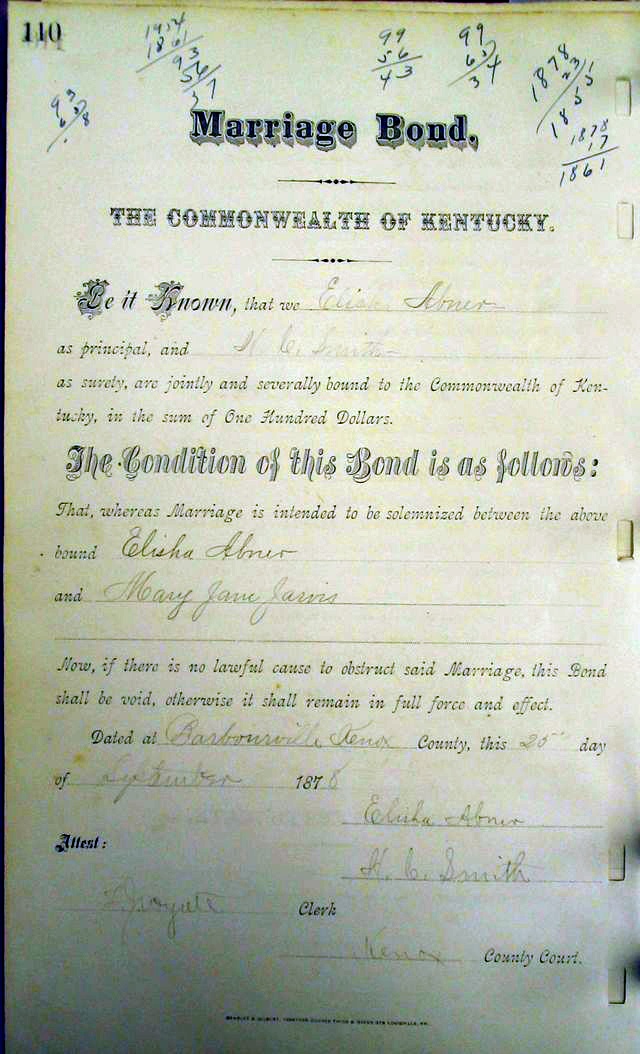 110
1954
1861
93
56
37
99
56
43
99
65
34
1878
23
1855
1878
17
1861
93
Marriage Bond.
THE COMMONWEALTH OF KENTUCKY.
Be it Known, that we Elisha Abner
as principal, and H. C. Smith
as surety, are jointly and severally bound to the Commonwealth of Ken-
tucky, in the sum of One Hundred Dollars.
The Condition of this Bond is as follows:
That, whereas Marriage is intended to be solemnized between the above
bound Elisha Abner
and Mary Jane Jarvis
Now, if there is no lawful cause to obstruct said Marriage, this Bond
shall be void, otherwise it shall remain in full force and effect.
Dated at Barbourville Knox County, this 25 day
of September 1878
Elisha Abner
Attest:
H. C. Smith
Clerk
Knox County Court.